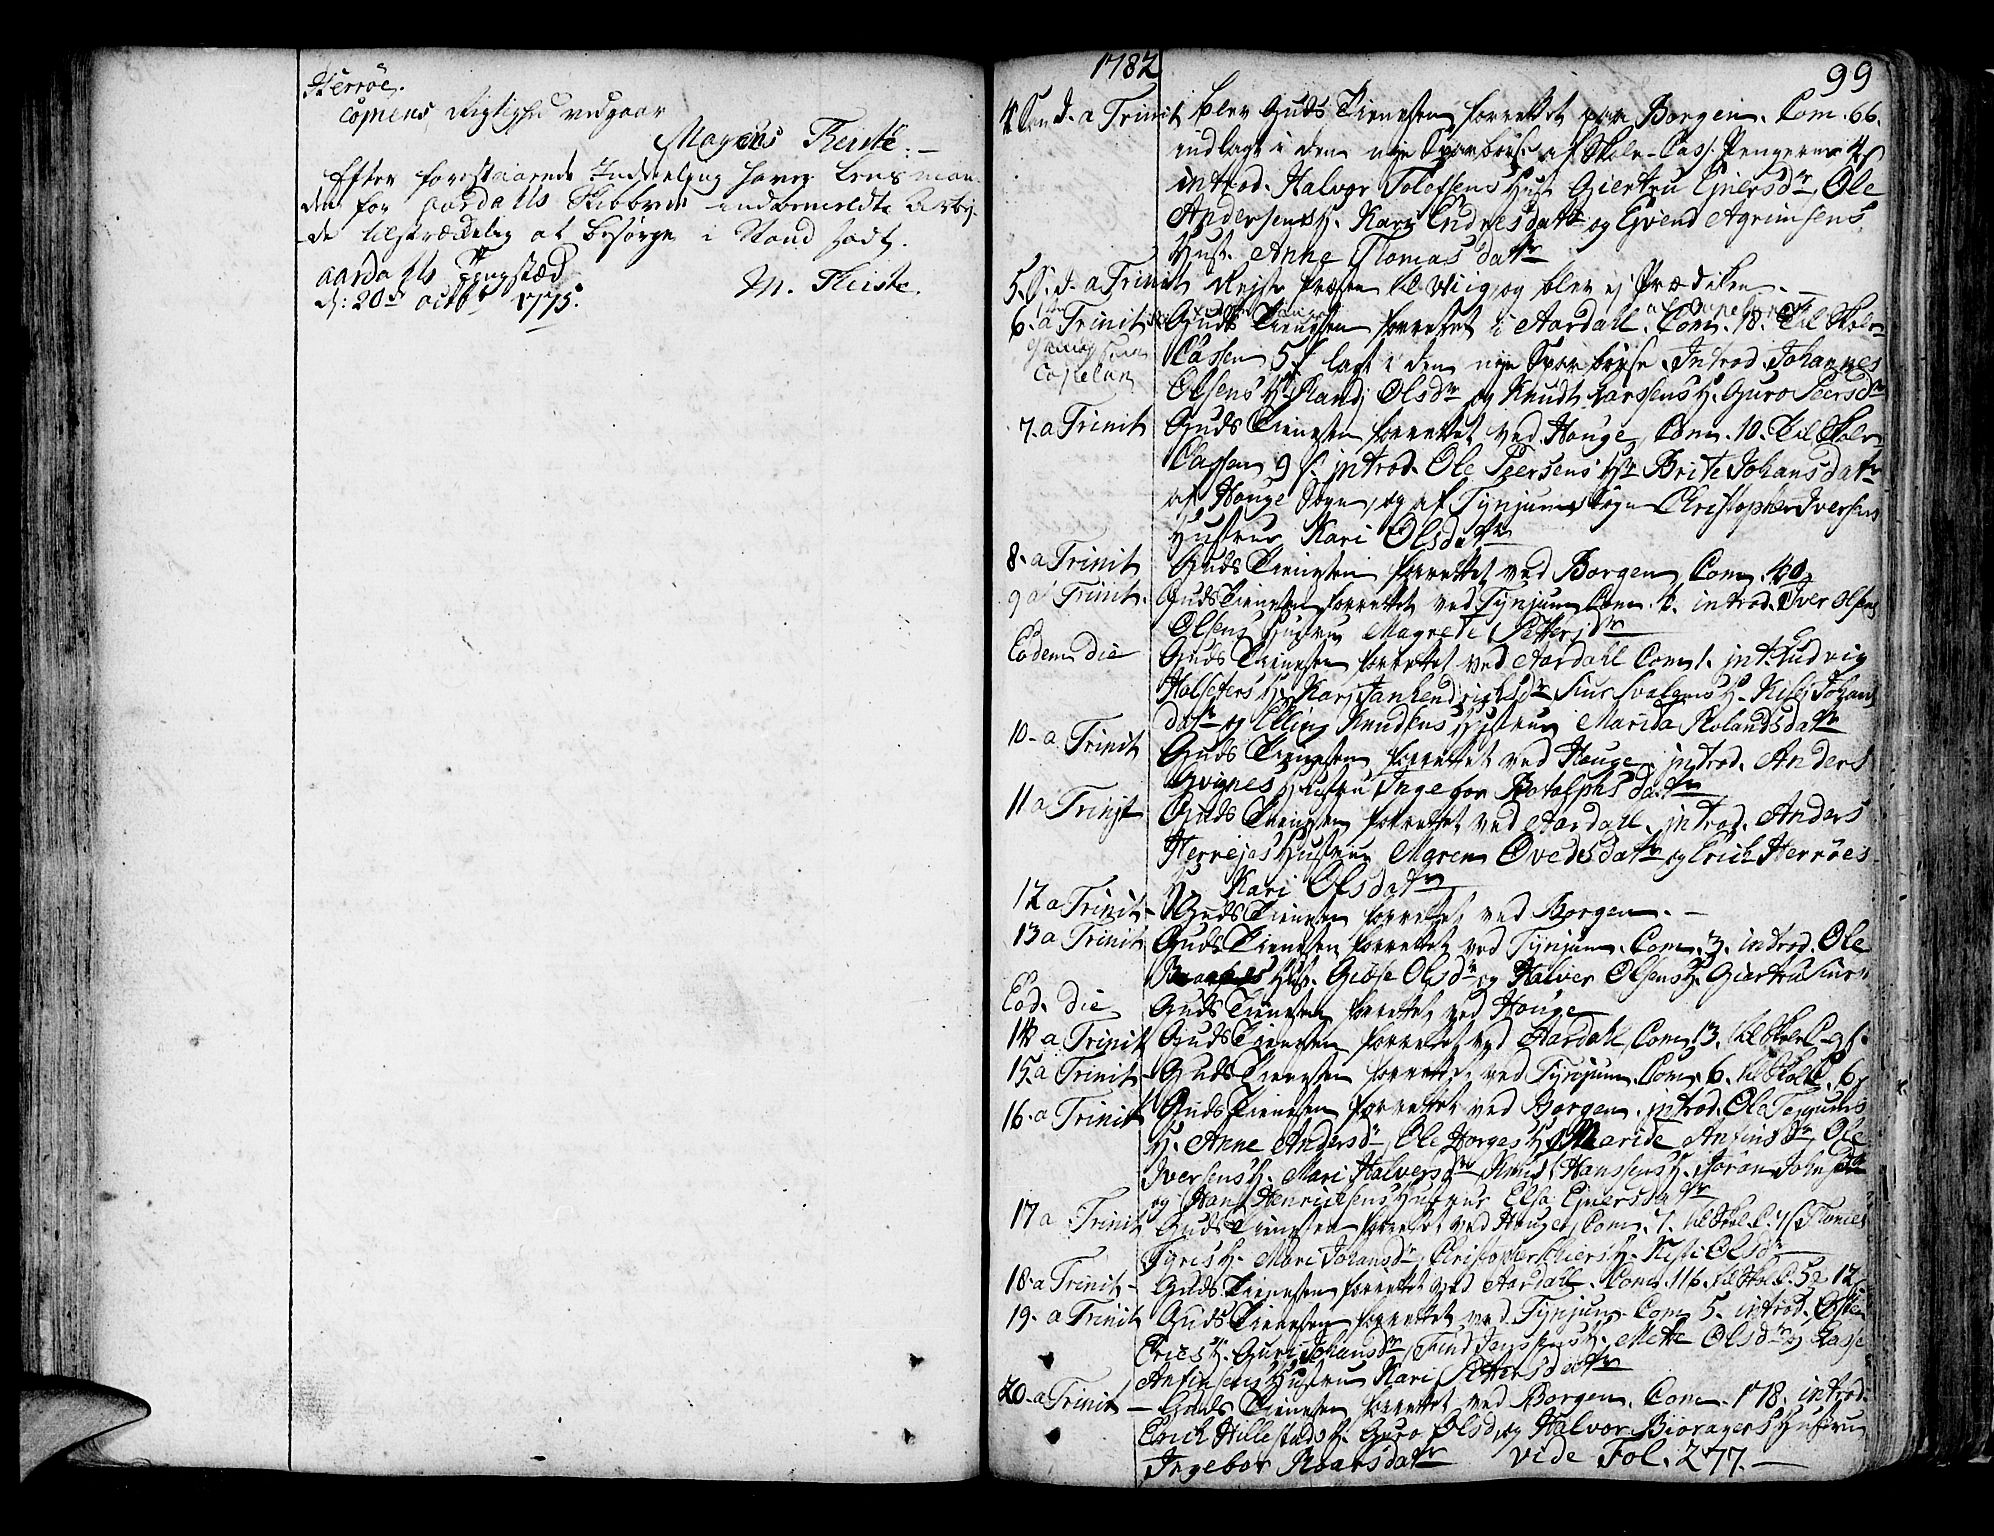 Herröe.
Copiens Rigtighed vedgaar
Magnus Theiste.
Efter forestaaende Inddeling haver Lensman-
den for Aardalls Skibbrede indbemeldte Arbej-
de tilstrædelig at besørge i Stand satt.
Aardalls Tingstæd
d: 20de octbr 1775.
M. Theiste.
1782
99
4 Sond. a Trinit blev Guds Tienesten forrettet paa Borgen. Com. 66.
indlagt i den nye Sparbøsse af Skole-Cass. Pengerne 4 s
introd. Halvor Tolefsens Hust. Giertru Ejnersdr, Ole
Andersens H. Kari Endresdatr og Evend Agrimsens
Hust. Anne Thomasdatr
5. S. d. a Trinit Rejste Præsten til Wiig, og blev ej Prædiken.
6. a Trinit Guds Tienesten forrettet i Aardall. Com. 18. til Skole-
Capelan
Cassen 5 s lagt i den nye Sparbøsse. Introd. Johannes
Olsens H. Randi Olsdr og Knudt Larssens H. Guro Peersdr
7. a Trinit Guds Tienesten forrettet ved Houge, Com. 10. til Skole
Cassen 9 s. introd. Ole Peersens Hr Brite Johansdatr
af Houge Sogn, og af Tynjum Sogn Christopher Iversens
Hustrue Kari Olsdatr
8. a Trinit Guds Tienesten forrettet ved Borgen, Com. 40.
9 a Trinit. Guds Tienesten forrettet ved Tynjum Com. 1. introd. Iver Olsens
Olsens Hustrue Magrete Pettersdr
Eodem die Guds Tienesten forrettet ved Aardahl Com 1. int. Ludvig
Halseters H. Kari Janhendrichsdr Siur Svalgens H. Kisti Johans
datr og Elling Knudsens Hustrue Marida Rolandsdatr
10. a Trinit Guds Tienesten forrettet ved Houge. introd. Anders
Gvignes Hustru Ingebor Botolphsdatr
11 a Trinit Guds Tienesten forrettet ved Aardall. introd. Anders
Herrejas Hustrue Maren Ovedsdatr og Erich Herröes
H. Kari Olsdatr
12 a Trinit Guds Tienesten forrettet ved Borgen.
13 a Trinit Guds Tienesten forrettet ved Tynjum. Com. 3. introd. Ole
Hust. Giöse Olsdr og Halver Olsens H. Giertru Siurs
Eod. die Guds Tienesten forrettet ved Houge
14 a Trinit Guds Tienesten forrettet ved Aardahl, Com. 13. til Skole C. 9 s.
15. a Trinit Guds Tienesten forrettet ved Tynjum. Com. 6. til Skole C. 6 s
16. a Trinit Guds Tienesten forrettet ved Borgen. introd. Ole Teigums
H. Anne Andersdr, Ole Horges H. Maride Anfinsdr, Ole
Iversens H. Mari Halversdr Knud Hanssens H. Jøran Johnsda
og Hans Henrichsens Hustrue Elsa Ejnersdatr
17 a Trinit Guds Tienesten forrettet ved Houge, Com. 7. til Skole C. 4 s Thomes
Tyris H. Mari Johansdr, Christopher H. Kisti Olsdr
18. a Trinit Guds Tienesten forrettet ved Aardall. Com. 116. til Skole C. 5 12 s
19. a Trinit Guds Tienesten forrettet ved Tynjum. Com. 5. introd. Østen
Eries H. Guri Johansdr, Find Jenssens H. Mette Olsdr og Lasse
Anfinsens Hustrue Kari Pettersdatr
20. a Trinit Guds Tienesten forrettet ved Borgen. Com. 178. introd.
Erich Hillestads H. Guro Olsd, og Halvor Bioragers Hustrue
Ingebor Roarsdatr vide Fol. 277.